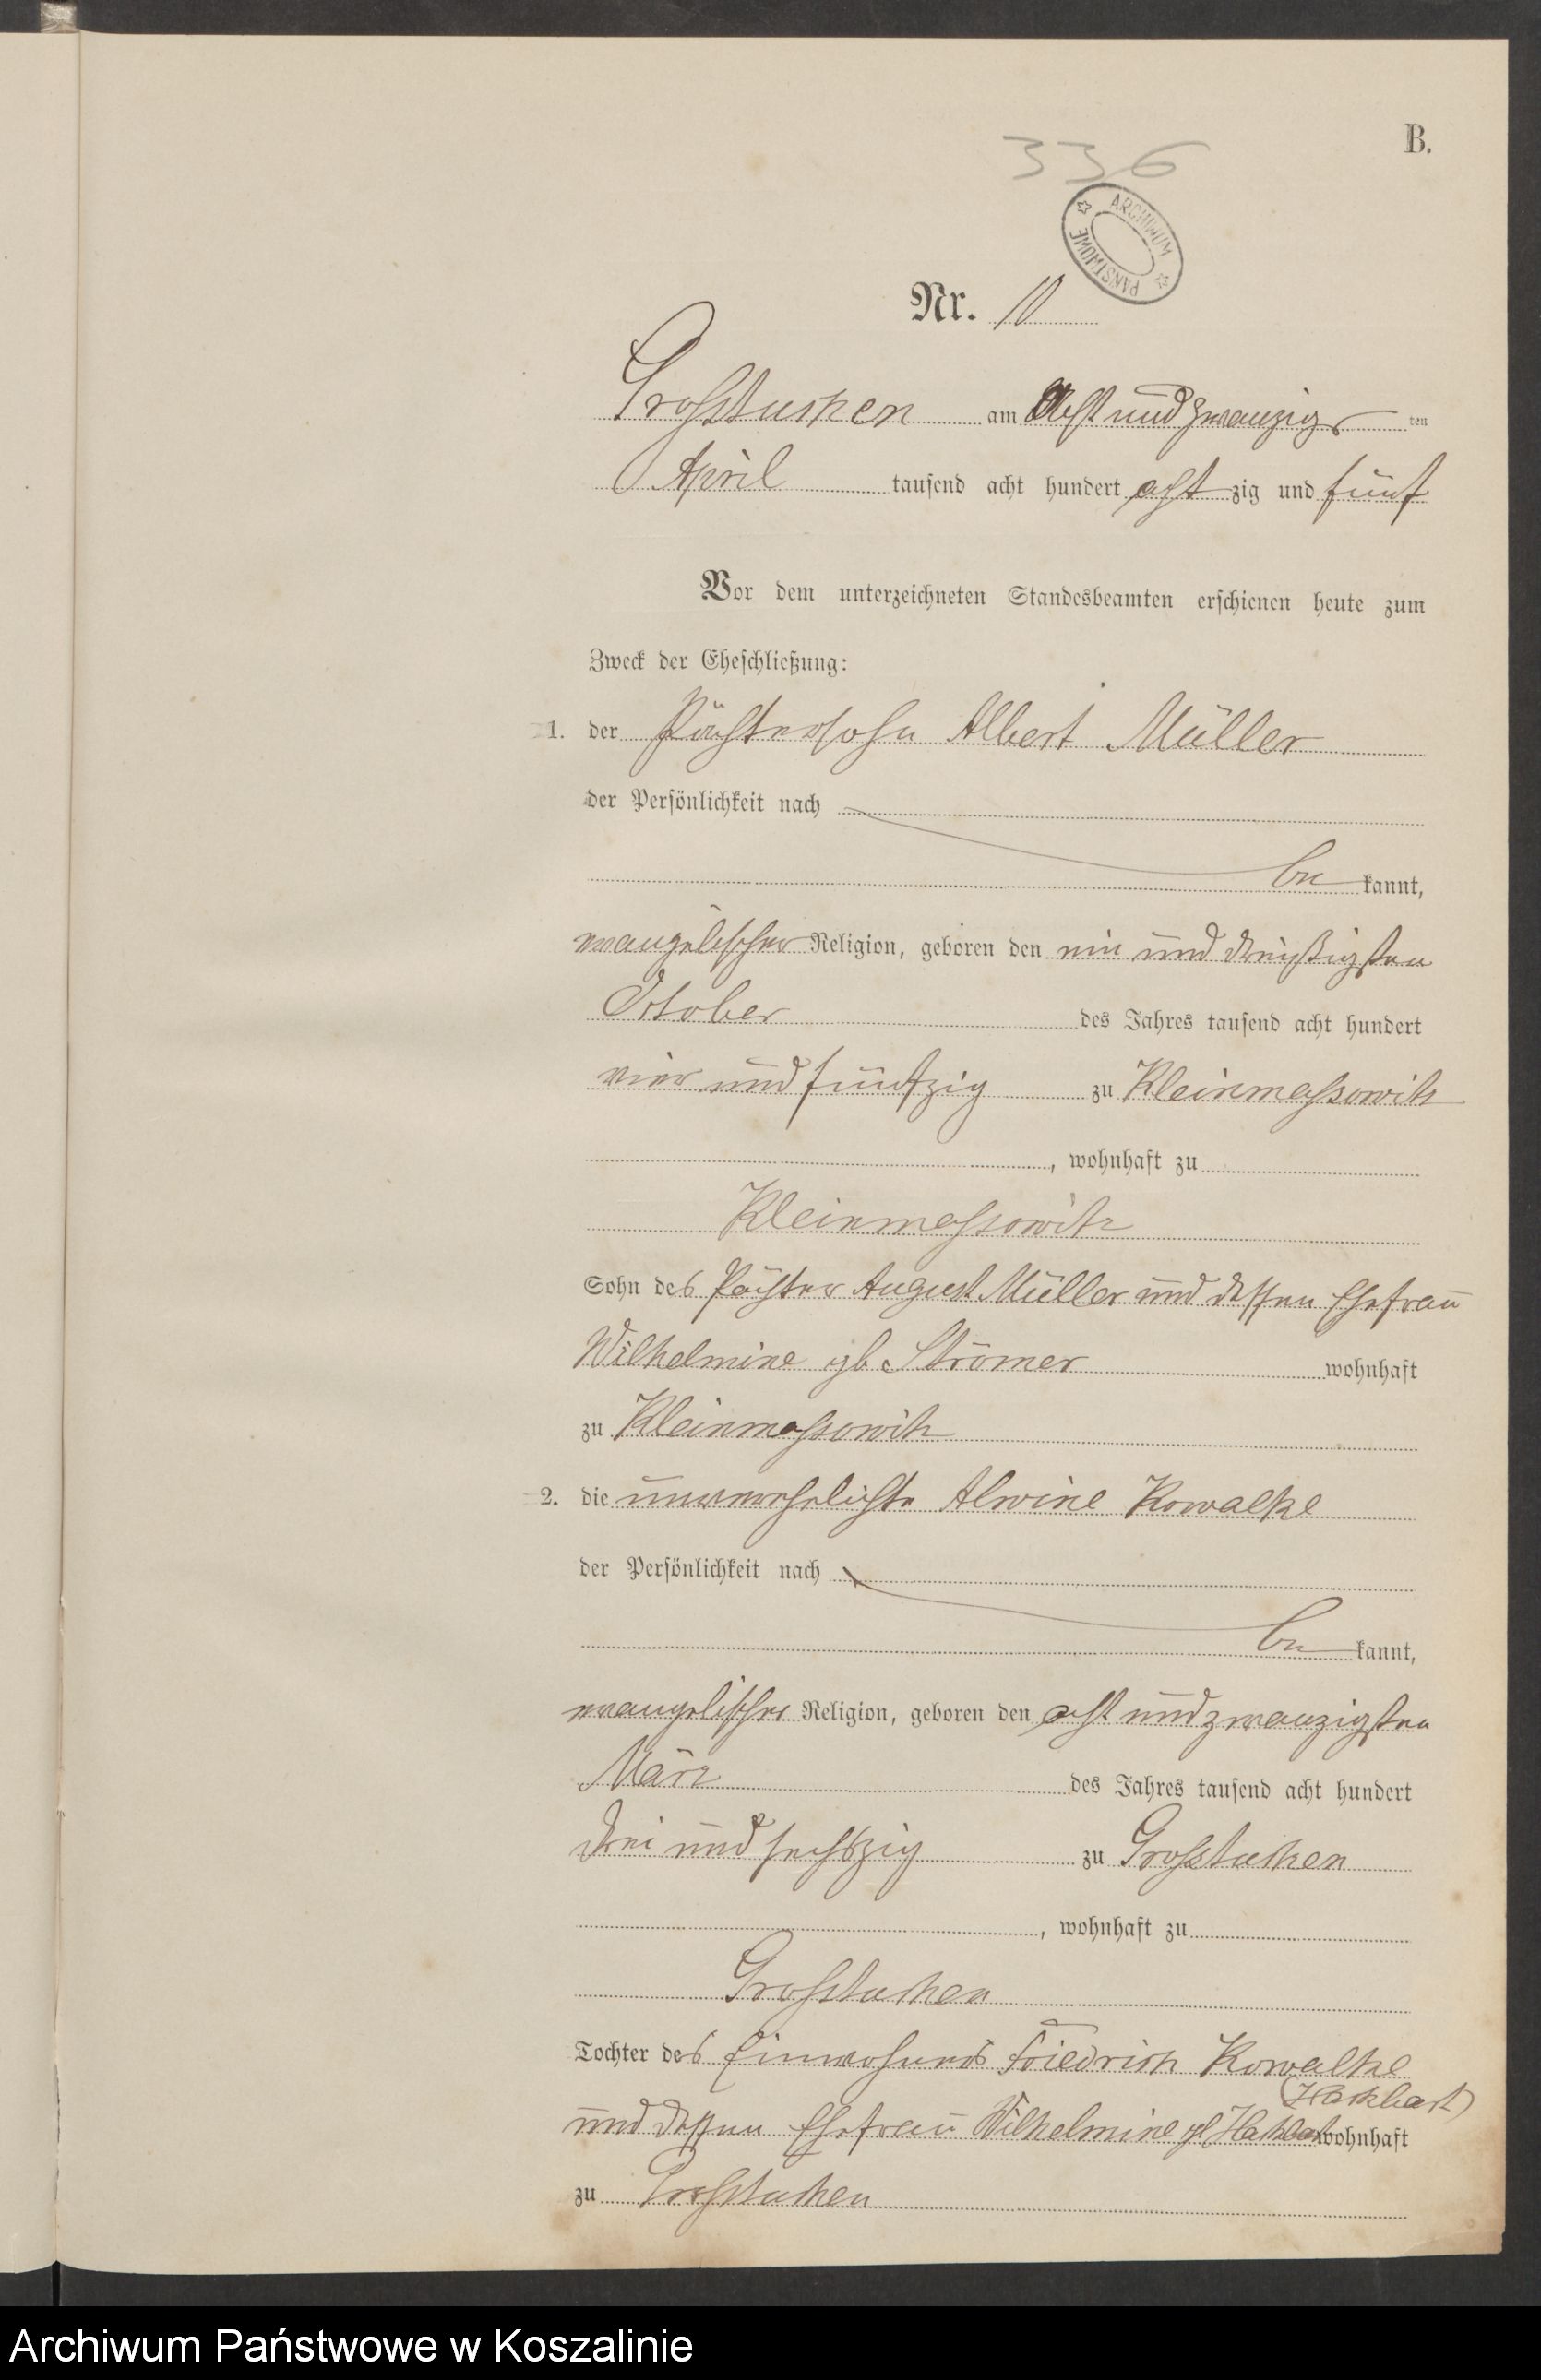 B.
336
ARCHIWUM PAŃSTWOWE
Nr. 10
Grosstuchen am Acht und zwanzigs ten
April tausend acht hundert acht zig und fünf
Vor dem unterzeichneten Standesbeamten erschienen heute zum
Zweck der Eheschließung:
1. der Pächtersohn Albert Müller
der Persönlichkeit nach
be kannt,
evangelischer Religion, geboren den ein und dreißigsten
October des Jahres tausend acht hundert
vier und fünfzig zu Kleinmassowitz
, wohnhaft zu
Kleinmassowitz
Sohn des Pächter August Müller und dessen Ehefrau
Wilhelmine gb. Strömer wohnhaft
zu Kleinmassowitz
2. die unverehelichte Alwine Kowalke
der Persönlichkeit nach
be kannt,
evangelischer Religion, geboren den acht und zwanzigsten
März des Jahres tausend acht hundert
drei und sechszig zu Grosstuchen
, wohnhaft zu
Grosstuchen
Tochter des Einwohners Friedrich Kowalke
(Hackbart)
und dessen Ehefrau Wilhelmine gb wohnhaft
zu Grosstuchen
Archiwum Państwowe w Koszalinie